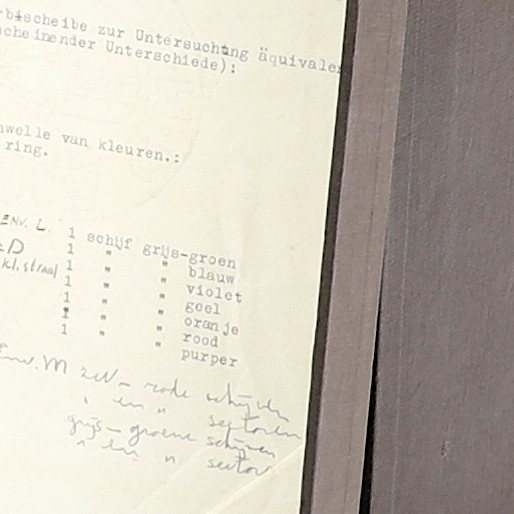 rbscheibe zur Untersuchung äquivale
scheinender Unterschiede):
welle van kleuren.:
ring.
ENV. L. 1 schijf grijs-groen
D 1 " " blauw
kl. straal 1 " " violet
1 " " geel
1 " " oranje
1 " " rood
1 " " purper
Env. M zw - rode schijven
" en " sectoren
grijs - groene schijven
" en " sector